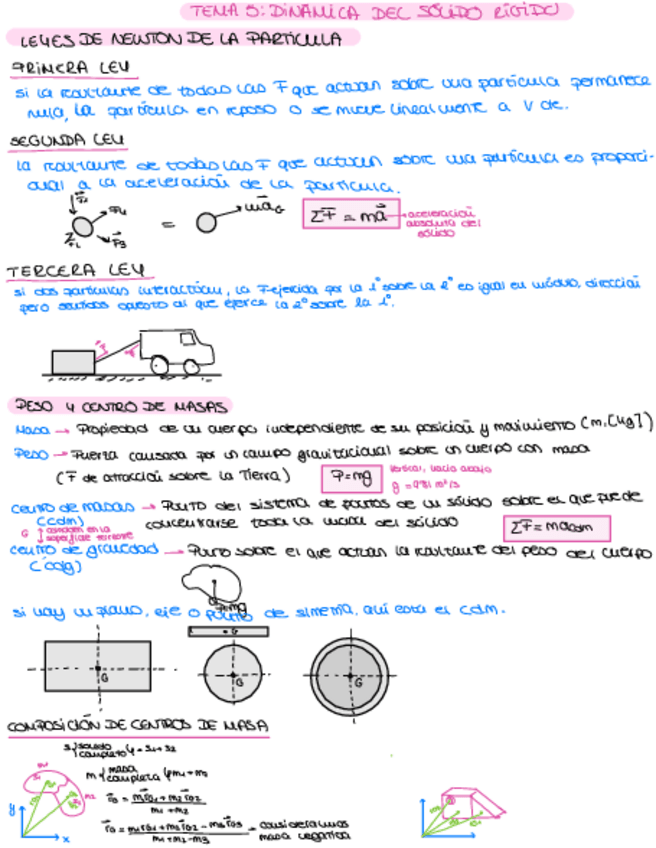 TEMA 5: DINÁMICA DEL SÓLIDO RÍGIDO
LEYES DE NEWTON DE LA PARTÍCULA
PRIMERA LEY
si la resultante de todas las F que actúan sobre una partícula permanece
nula, la partícula en reposo o se mueve linealmente a v cte.
SEGUNDA LEY
la resultante de todas las F que actúan sobre una partícula es proporci-
onal a la aceleración de la partícula.
F4
F3
= m a⃗G
ΣF⃗ = ma⃗ → aceleración
absoluta del
sólido
TERCERA LEY
si dos partículas interactúan, la F ejercida por la 1ª sobre la 2ª es igual en módulo, dirección
pero sentidos opuesto al que ejerce la 2ª sobre la 1ª.
PESO Y CENTRO DE MASAS
Masa → Propiedad de un cuerpo independiente de su posición y movimiento (m, [kg])
Peso → Fuerza causada por un campo gravitacional sobre un cuerpo con masa
(F⃗ de atracción sobre la Tierra)
P=mg
vertical, hacia abajo
g = 9'81 m²/s
centro de masas → Punto del sistema de puntos de un sólido sobre el que puede
(cdm) concentrarse toda la masa del sólido
ΣF⃗ = macdm
G
coinciden en la
superficie terrestre
centro de gravedad → Punto sobre el que actúan la resultante del peso del cuerpo
(cdg)
P=mg
si hay un plano, eje o punto de simetría, aquí está el cdm.
G
G
G
G
COMPOSICIÓN DE CENTROS DE MASA
sólido
completo = S1 + S2
m masa
completa m1+m2
r⃗G = m1rG1 + m2rG2
m1 + m2
r⃗G = m1rG1 + m2rG2 - m3rG3 → consideramos
m1 + m2 - m3 masa negativa
y
x